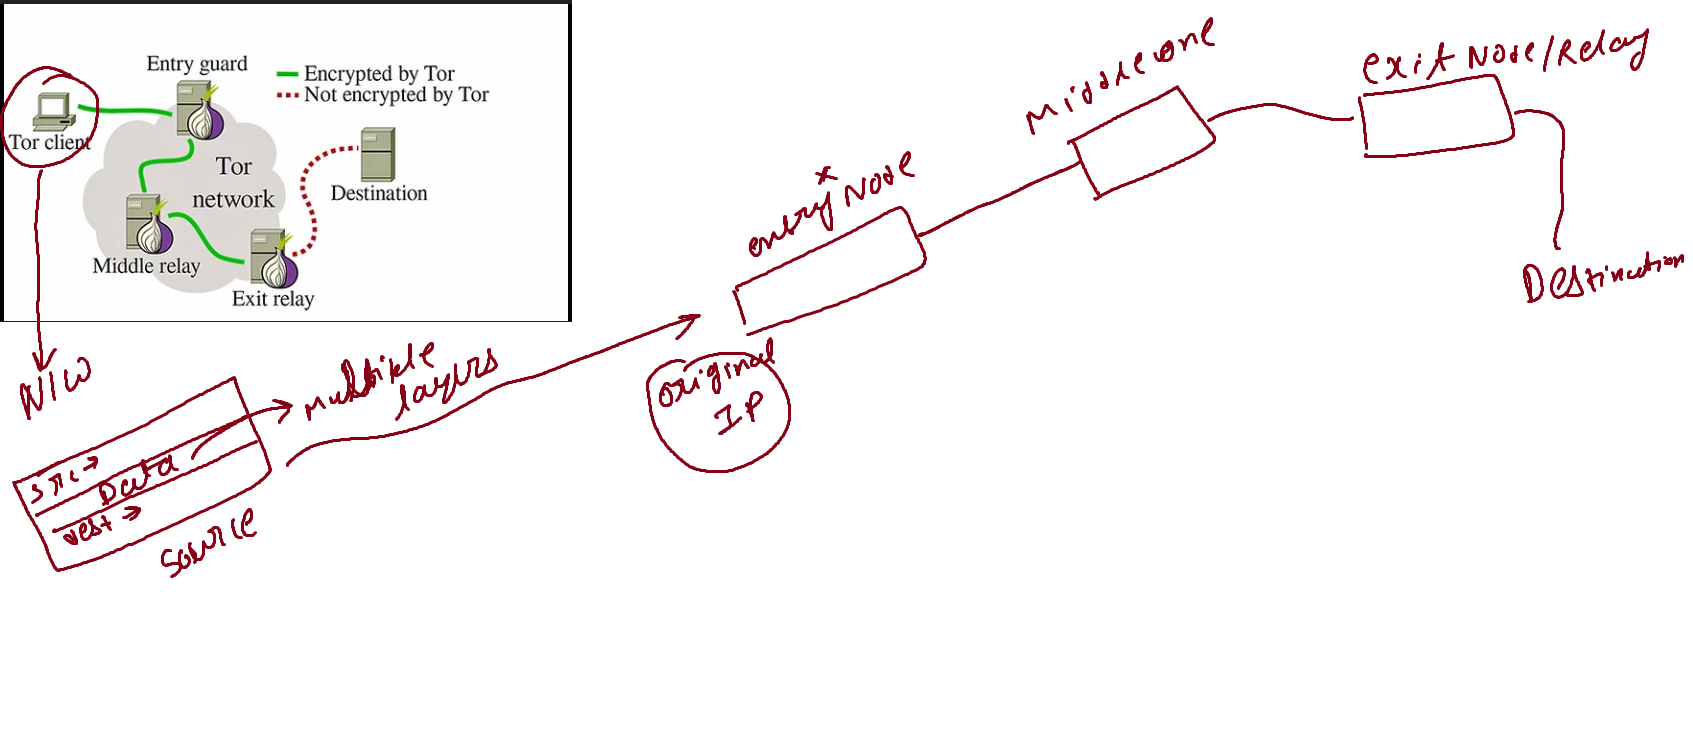 Entry guard
Encrypted by Tor
Not encrypted by Tor
Tor client
Tor
network
Destination
Middle relay
Exit relay
N/W
src→
Data
dest→
source
multiple
layers
original
IP
entry Node
x
Middle one
exit Node/Relay
Destination